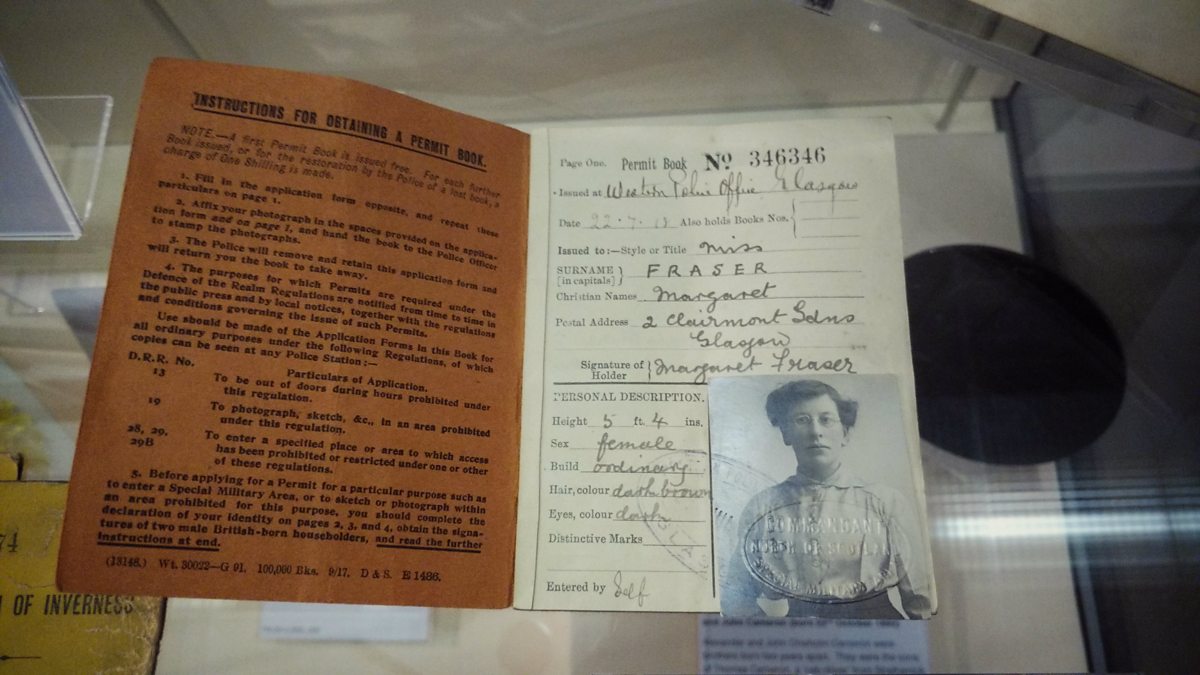 INSTRUCTIONS FOR OBTAINING A PERMIT BOOK.
NOTE.—A first Permit Book is issued free. For each further
Book issued, or for the restoration by the Police of a lost book, a
charge of One Shilling is made.
1. Fill in the application form opposite, and repeat these
particulars on page 1.
2. Affix your photograph in the spaces provided on the applica-
tion form and on page 1, and hand the book to the Police Officer
to stamp the photographs.
3. The Police will remove and retain this application form and
will return you the book to take away.
4. The purposes for which Permits are required under the
Defence of the Realm Regulations are notified from time to time in
the public press and by local notices, together with the regulations
and conditions governing the issue of such Permits.
Use should be made of the Application Forms in this Book for
all ordinary purposes under the following Regulations, of which
copies can be seen at any Police Station:—
D.R.R. No. Particulars of Application.
13 To be out of doors during hours prohibited under
this regulation.
19 To photograph, sketch, &c., in an area prohibited
under this regulation.
28, 29, To enter a specified place or area to which access
29B has been prohibited or restricted under one or other
of these regulations.
5. Before applying for a Permit for a particular purpose such as
to enter a Special Military Area, or to sketch or photograph within
an area prohibited for this purpose, you should complete the
declaration of your identity on pages 2, 3, and 4, obtain the signa-
tures of two male British-born householders, and read the further
instructions at end.
(13148.) Wt. 30022—G 91. 100,000 Bks. 9/17. D & S. E 1486.
Page One. Permit Book No 346346
Issued at Western Police Office Glasgow
Date 22.7.18 Also holds Books Nos.
Issued to:—Style or Title Miss
SURNAME FRASER
[in capitals]
Christian Names Margaret
Postal Address 2 Clairmont Gdns
Glasgow
Signature of Holder Margaret Fraser
PERSONAL DESCRIPTION.
Height 5 ft. 4 ins.
Sex female
Build ordinary
Hair, colour dark brown
Eyes, colour dark
Distinctive Marks
Entered by Self
COMMANDANT
NORTH OF
SPECIAL MILITARY
74
OF INVERNESS
Alexander and John Chisholm Cameron were
brothers born two years apart. They were the sons
of Thomas Cameron, a